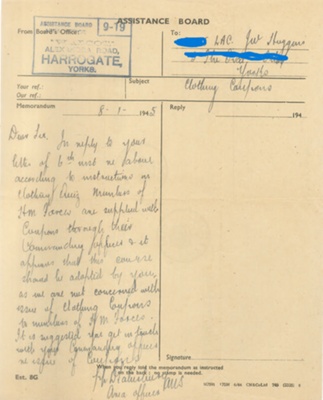 ASSISTANCE BOARD
ASSISTANCE BOARD 9-19
From Board's Office:
ROAD,
HARROGATE,
YORKS.
To:
LAC. Huggins
The
Yorks
Your ref.:
Our ref.:
Subject
Clothing Coupons
Memorandum 8 - 1 - 1945
Reply 194
Dear Sir, In reply to your
letter of 6th inst re above
according to instructions on
Clothing Members of
H.M Forces are supplied with
Coupons through their
Commanding Officer & it
appears that this course
should be adopted by you,
as we are not concerned with
issue of Clothing Coupons
to members of H.M. Forces.
It is suggested you get in touch
with your Commanding Officer
re of Coupons
Area Officer
Signature
When you reply fold the memorandum as instructed
on the back: no stamp is needed.
Est. 8G